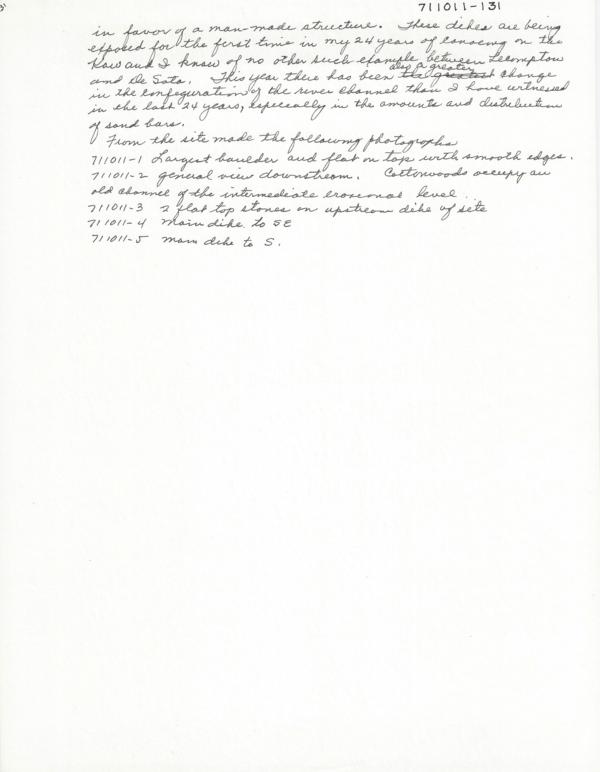 711011-131
in favor of a man-made structure. These dikes are being
exposed for the first time in my 24 years of canoeing on the
Kaw and I know of no other such example between Lecompton
and De Soto. This year there has been also a greater the greatest change
in the configuration of the river channel than I have witnessed
in the last 24 years, especially in the amounts and distribution
of sand bars.
From the site made the following photographs
711011-1 Largest boulder and flat on top with smooth edges.
711011-2 general view downstream. Cottonwoods occupy an
old channel of the intermediate erosional level.
711011-3 2 flat top stones on upstream dike of site
711011-4 Main dike to SE
711011-5 main dike to S.